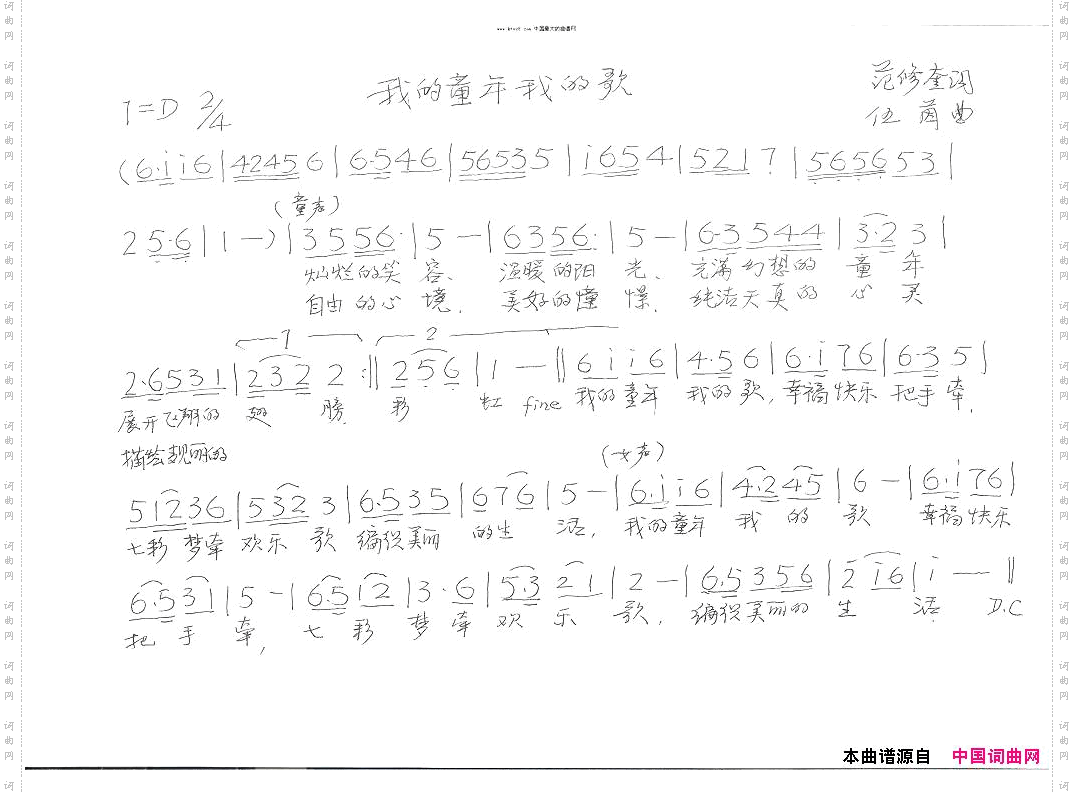 中国最大的曲谱网
我的童年我的歌
范修奎词
1=D 2/4
伍 茵 曲
(6·i i6|42456|6·546|56535|i654|5217|565653|
(童声)
25·6|1—)|3556·|5—|6356·|5—|6·3544|3·23|
灿烂的笑 容、 温暖的阳 光、 充满幻想的 童 年
自由的心 境、 美好的憧 憬、 纯洁天真的 心 灵
1 2
2·6531|2322:||256|1—||6ii6|4·56|6·i76|6·35|
展开飞翔的 翅 膀. 彩 虹 fine 我的童年 我的歌,幸福快乐 把手牵,
描绘靓丽的
(女声)
51236|5323|6535|676|5—|6·ii6|4·245|6—|6·i76|
七彩梦牵 欢乐 歌 编织美丽 的生 活, 我的童年 我 的 歌 幸福快乐
6·531|5—|6512|3·6|5·321|2—|6·5356|2i6|i—||
把 手 牵, 七 彩 梦 牵 欢 乐 歌, 编织美丽的 生 活 D.C
本曲谱源自 中国词曲网
词曲网